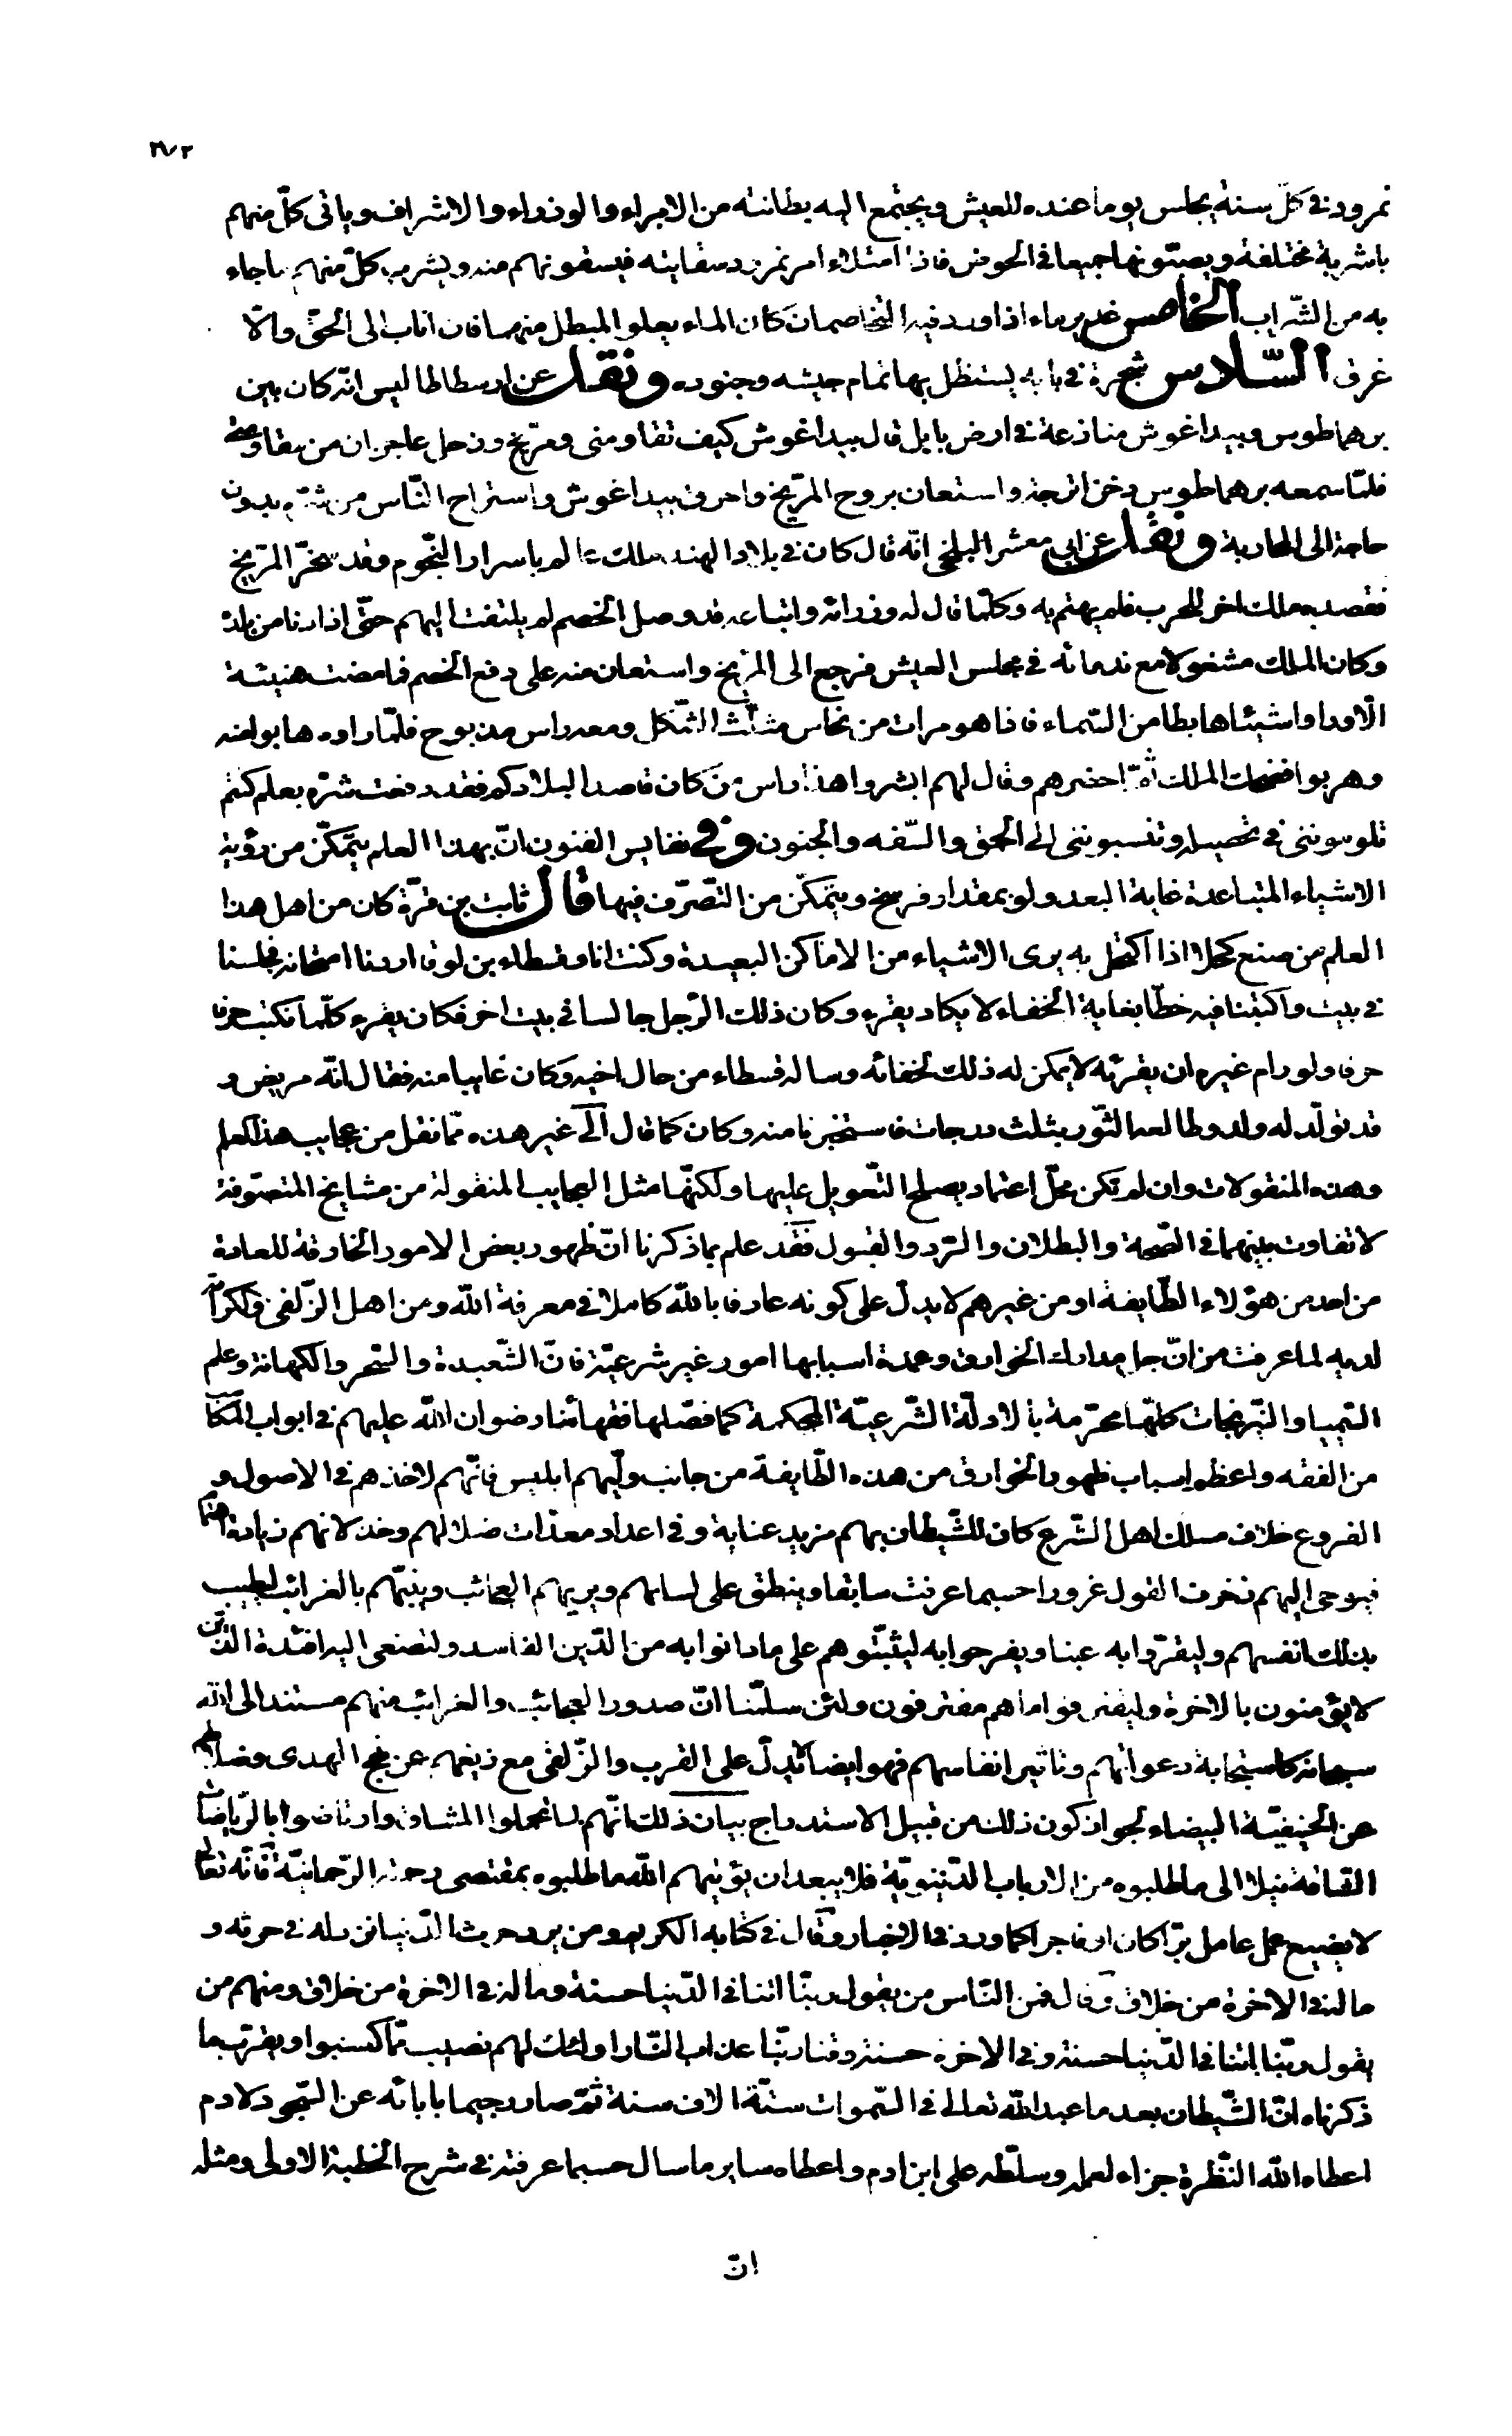 ٣٧٢
نمرود فى كلّ سنة يجلس يوما عنده للعيش ويجتمع اليه بطانته من الامراء والوزراء والاشراف وياتى كلّ منهم
باشربة مختلفة ويصبّونها جميعا فى الحوض فاذا امتلاء امر نمرود سقايته فيسقونهم منه ويشرب كلّ منهم ما جاء
به من الشّراب الخامس غدير ماء اذا ورد فيه التخاصمان كان الماء يعلو المبطل منهما فان اناب الى الحقّ والّا
غرق السّادس شجرة فى بابه يستظل بها تمام جيشه وجنوده ونقل عن ارسطاطاليس انّه كان بين
برهماطوس وبيداغوش منازعة فى ارض بابل قال بيداغوش كيف تقاومنى ومرّيخ وزحل عاجزان من مقاومتى
فلمّا سمعه برهماطوس دخن اترجة واستعان بروح المرّيخ واحرق بيداغوش واستراح النّاس من شرّه بدون
حاجة الى المحاربة ونقل عن ابى معشر البلخى انّه قال كان فى بلاد الهند ملك عالم باسرار النّجوم وقد سخّر المرّيخ
فقصده ملك اخر للحرب فلم يهتم به وكلّما قال له وزرائه واتباعه قد وصل الخصم لم يلتفت اليهم حتّى اذا دنا من بلده
وكان الملك مشغولا مع ندمائه فى مجلس العيش فرجع الى المرّيخ واستعان منه على دفع الخصم فما مضت هنيئة
الّا وراوا شيئا هابطا من السّماء فاذا هو مرات من نحاس مثلّث الشّكل ومعه راس مذبوح فلمّا راوه هابوا منه
وهربوا فضحك الملك ثمّ احضرهم وقال لهم ابشروا هذا راس من كان قاصدا لبلادكم فقد دفعت شرّه بعلم كنتم
تلومونى فى تحصيله وتنسبوننى الى الحمق والسّفه والجنون وفى نفايس الفنون انّ بهذا العلم يتمكّن من رؤية
الاشياء المتباعدة غاية البعد ولو بمقدار فرسخ ويتمكّن من التصرّف فيها قال ثابت بن قرّة كان من اهل هذا
العلم من صنع كحلا اذا اكتحل به يرى الاشياء من الاماكن البعيدة وكنت انا وقسطاء بن لوقا اردنا امتحانه فجلسنا
فى بيت واكتبنا فيه خطّا بغاية الخفاء لا يكاد يقرء وكان ذلك الرّجل جالسا فى بيت اخر فكان يقرء كلّما نكتب حرفا
حرفا ولو رام غيره ان يقرئه لا يمكن له ذلك لخفائه وساله قسطاء من حال اخيه وكان غايبا منه فقال انّه مريض و
قد تولّد له ولد وطالعه الثّور بثلث درجات فاستخبرنا منه وكان كما قال الى غير هذه ممّا نقل من عجايب هذا العلم
وهذه المنقولات وان لم تكن محلّ اعتماد يصلح التّعويل عليها ولكنّها مثل العجايب المنقولة من مشايخ المتصوّفة
لا تفاوت بينهما فى الصّحة والبطلان والرّد والقبول فقد علم بما ذكرنا انّ ظهور بعض الامور الخارقة للعادة
من احد من هؤلاء الطّايفة او من غيرهم لا يدلّ على كونه عارفا باللّه كاملا فى معرفة اللّه ومن اهل الزّلفى والكرامة
لديه لما عرفت من انّ جل مدارك الخوارق وعمدة اسبابها امور غير شرعيّة فانّ الشّعبدة والسّحر والكهانة وعلم
السّيميا والنّيرنجات كلّها محرّمة بالادلّة الشّرعيّة المحكمة كما فصّلها فقهائنا رضوان اللّه عليهم فى ابواب المكاسب
من الفقه واعظم اسباب ظهور الخوارق من هذه الطّايفة من جانب وليّهم ابليس فانّهم لاخذهم فى الاصول و
الفروع خلاف مسلك اهل الشّرع كان للشّيطان بهم مزيد عناية وفى اعداد معدّات ضلالهم وخذلانهم زيادة اهتمام
فيوحى اليهم زخرف القول غرورا حسبما عرفت سابقا وينطق على لسانهم ويريهم العجائب وينبّهم بالغرائب لتطيب
بذلك انفسهم وليقرّوا به عينا ويفرحوا به ليثبّتوهم على ما دانوا به من الدّين الفاسد ولتصغى اليه افئدة الّذين
لا يؤمنون بالاخرة وليقترفوا ما هم مقترفون ولئن سلّمنا انّ صدور العجائب والغرائب منهم مستند الى اللّه
سبحانه كاستجابة دعواتهم وتاثير انفاسهم فهو ايضا لا يدلّ على القرب والزّلفى مع زيغهم عن نهج الهدى وضلالهم
عن الحنيفيّة البيضاء لجواز كون ذلك من قبيل الاستدراج بيان ذلك انّهم لما تحملوا المشاق وارتاضوا بالرّياضات
الشاقة نيلا الى ما طلبوه من الارباب الدّنيويّة فلا يبعد ان يؤتيهم اللّه ما طلبوه بمقتضى رحمته الرّحمانيّة فانّه تعالى
لا يضيع عمل عامل برّا كان او فاجرا كما ورد فى الاخبار وقال فى كتابه الكريم ومن يرد حرث الدّنيا نزد له فى حرثه و
ما له فى الاخرة من خلاق وقال فمن النّاس من يقول ربّنا اتنا فى الدّنيا حسنة وما له فى الاخرة من خلاق ومنهم من
يقول ربّنا اتنا فى الدّنيا حسنة وفى الاخرة حسنة وقنا ربّنا عذاب النّار اولئك لهم نصيب ممّا كسبوا ويقرّب ما
ذكرناه انّ الشّيطان بعد ما عبد اللّه تعالى فى السّموات ستّة الاف سنة ثمّ صار رجيما بابائه عن السّجود لادم
اعطاه اللّه النّظرة جزاء لعمله وسلّطه على ابن ادم واعطاه ساير ما سال حسبما عرفته فى شرح الخطبة الاولى ومثله
انّ